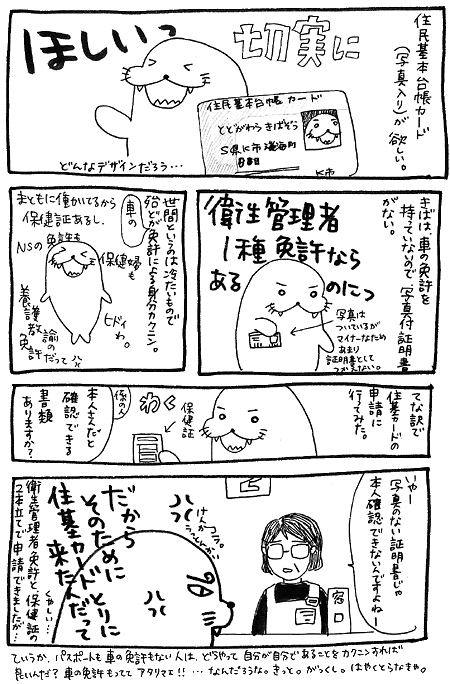 住民基本台帳カード
(写真入り)が欲しい。
切実に
ほしいっ
住民基本台帳カード
とどがわらきばぞう
S県K市磯海町
K市
どんなデザインだろう…
きばは、車の免許を
持っていないので、写真付証明書
がない。
衛生管理者
1種免許なら
あるのにっ
写真は
ついているが
マイナーなため
あまり
証明書として
つかえない。
世間というのは冷たいもので
殆どが車の免許による身分カクニン。
まともに働いてるから
保健証あるし、
NSの免許も
保健婦も
養護教諭の
免許だって
ヒドイ
わ。
てな訳で
住基カードの
申請に
行ってみた。
わく
わく
保健証
係の人
本人さんだと
確認できる
書類
ありますか?
いやー
写真のない証明書じゃ
本人確認できないんですよねー
窓口
けんか
うってんのか
コラ。
だから
そのために
住基カードとりに
来たんだって
くやしい…
衛生管理者免許と保健証の
2本立てで申請できましたが…
ていうか、パスポートも車の免許もない人は、どうやって自分が自分であることをカクニンすれば
良いんだ?車の免許もっててアタリマエ!!…なんだろうな。きっと。がっくし。はやくとらなきゃ。